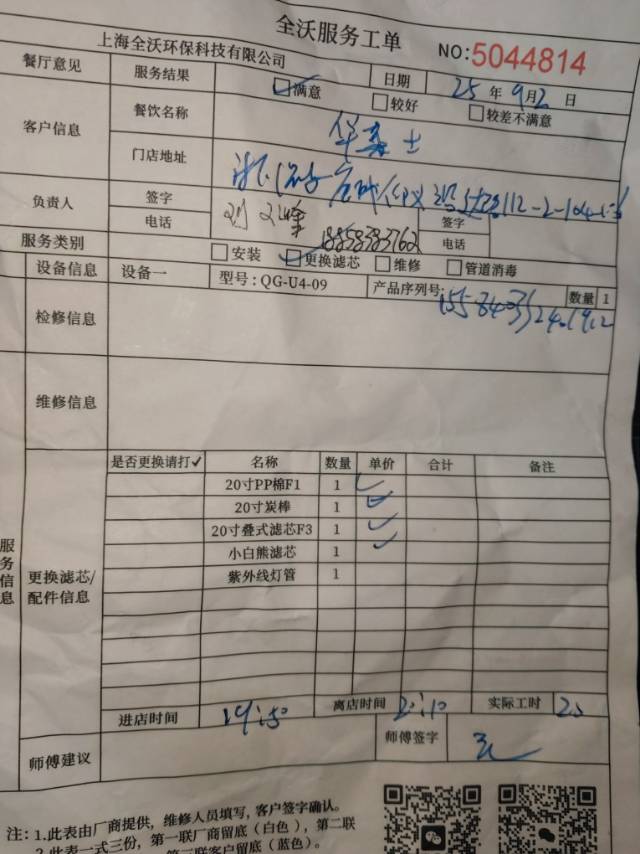 全沃服务工单
上海全沃环保科技有限公司
NO:5044814
餐厅意见 服务结果 满意 较好 较差不满意 日期 25年9月2日
客户信息 餐饮名称 华莱士
门店地址 112-2-104
负责人 签字 签字
电话 18858383762 电话
服务类别 安装 更换滤芯 维修 管道消毒
设备信息 设备一 型号:QG-U4-09 产品序列号: 数量 1
检修信息
维修信息
服务信息
更换滤芯/配件信息
是否更换请打✓ 名称 数量 单价 合计 备注
20寸PP棉F1 1 ✓
20寸炭棒 1 ✓
20寸叠式滤芯F3 1 ✓
小白熊滤芯 1 ✓
紫外线灯管 1
进店时间 19:50 离店时间 20:10 实际工时 20
师傅建议 师傅签字
注:1.此表由厂商提供，维修人员填写,客户签字确认。
2.此表一式三份，第一联厂商留底(白色)，第二联
第三联客户留底(蓝色)。